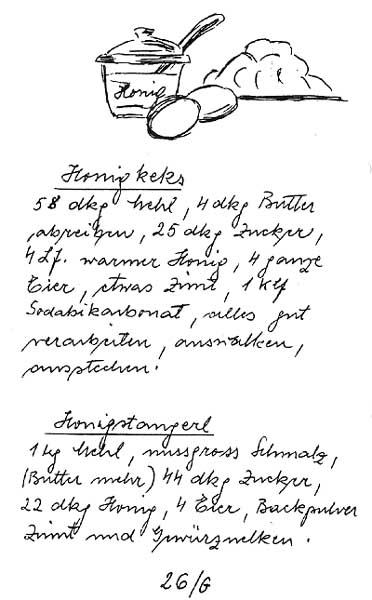 Honig
Honigkeks
58 dkg Mehl, 4 dkg Butter
abreiben, 25 dkg Zucker,
4 Lf. warmer Honig, 4 ganze
Eier, etwas Zimt, 1 Klf
Sodabikarbonat, alles gut
verarbeiten, auswalken,
ausstechen.
Honigstangerl
1 kg Mehl, nussgross Schmalz,
(Butter mehr) 44 dkg Zucker,
22 dkg Honig, 4 Eier, Backpulver
Zimt und Gewürznelken.
26/G